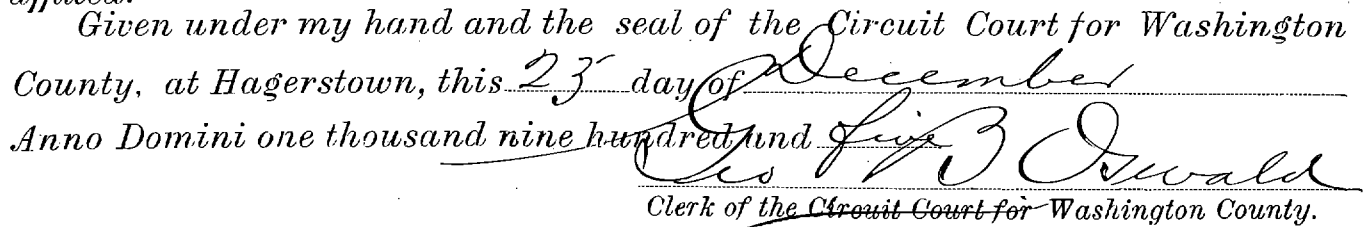 affixed.
Given under my hand and the seal of the Circuit Court for Washington
County, at Hagerstown, this 23 day of December
Anno Domini one thousand nine hundred and five
Geo B Oswald
Clerk of the Circuit Court for Washington County.